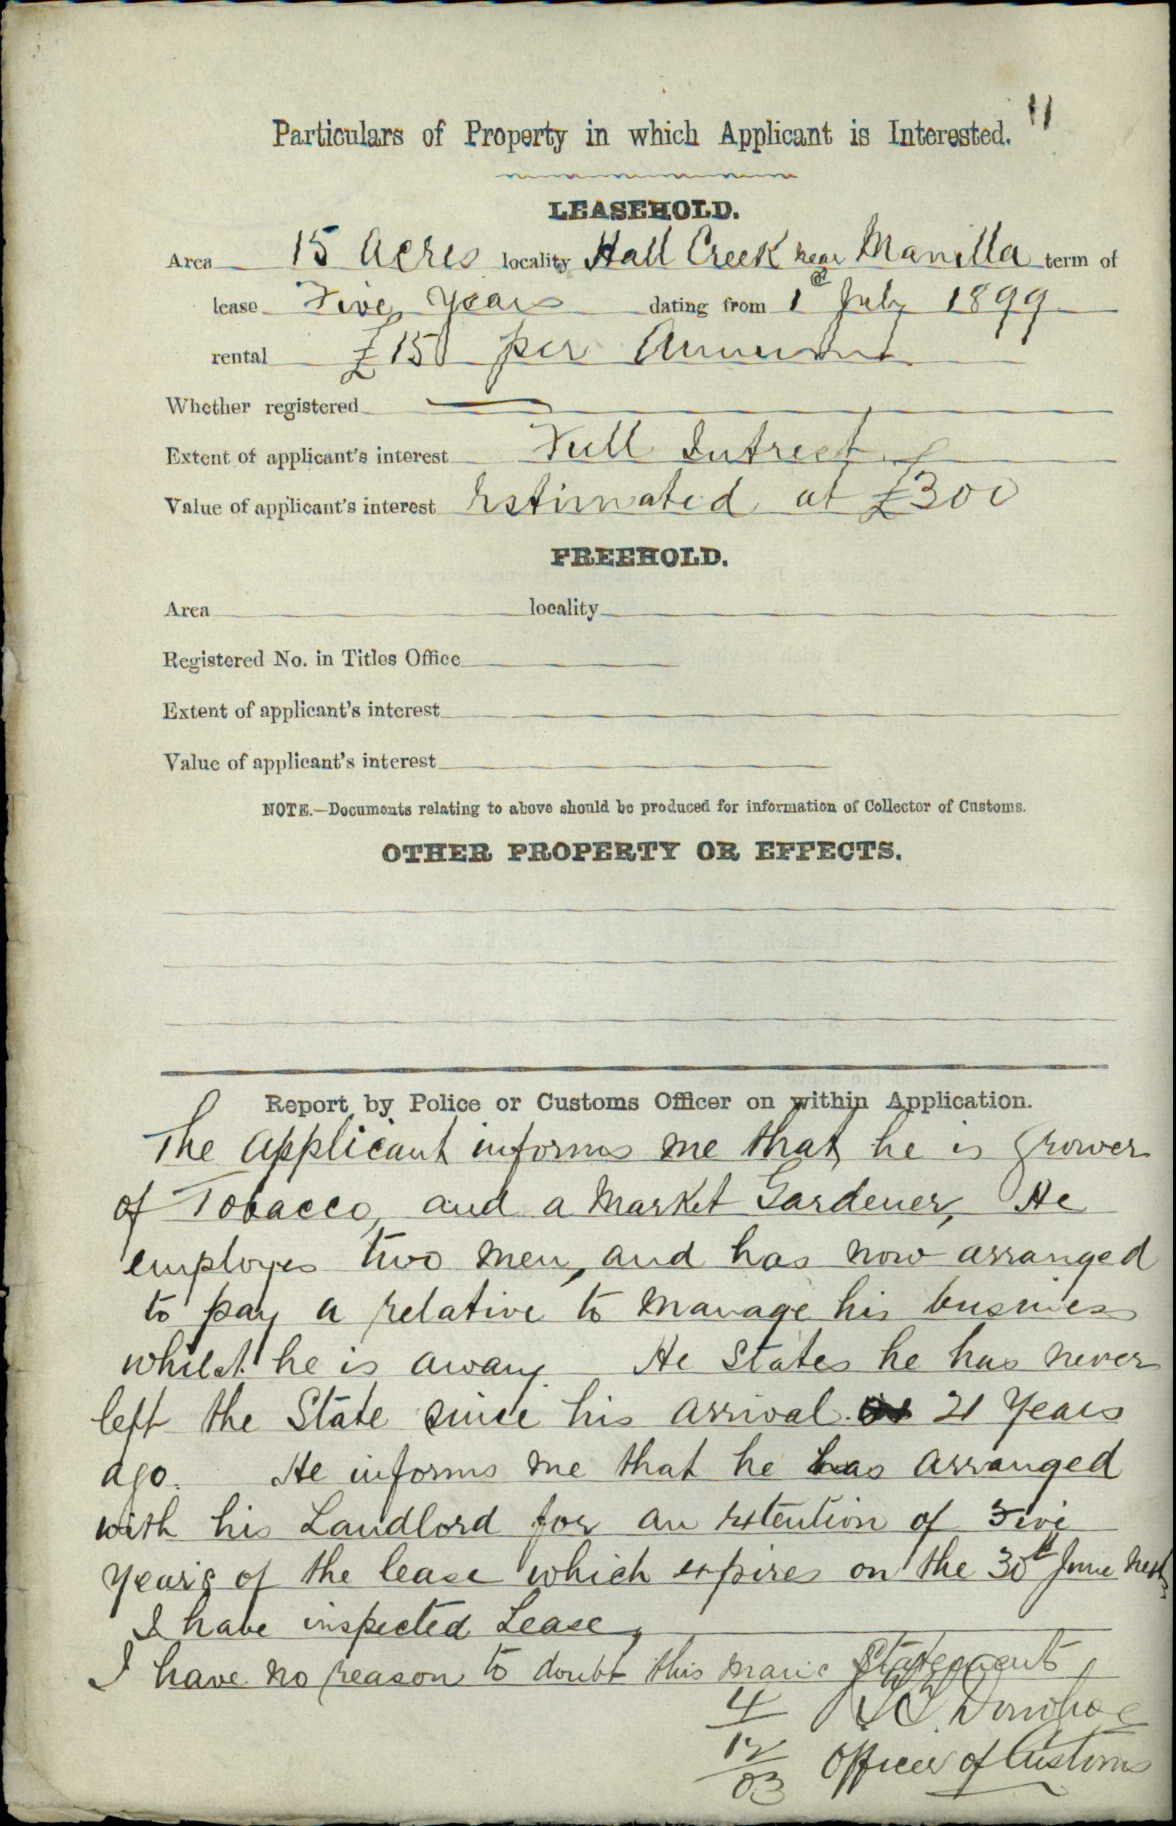 11
Particulars of Property in which Applicant is Interested.
LEASEHOLD.
Area 15 Acres locality Hall Creek near Manilla term of
lease Five Years dating from 1st July 1899
rental £15 per Annum
Whether registered —
Extent of applicant's interest Full Intrest
Value of applicant's interest Estimated at £300
FREEHOLD.
Area locality
Registered No. in Titles Office
Extent of applicant's interest
Value of applicant's interest
NOTE.—Documents relating to above should be produced for information of Collector of Customs.
OTHER PROPERTY OR EFFECTS.
Report by Police or Customs Officer on within Application.
The Applicant informs me that he is Grower
of Tobacco, and a Market Gardener, He
employes two men, and has now arranged
to pay a relative to manage his business
whilst he is away. He States he has never
left the State since his arrival 21 Years
ago. He informs me that he has arranged
with his Landlord for an extention of Five
Years of the lease which expires on the 30th June next,
I have inspected Lease,
I have no reason to doubt this mans statement,
4/12/03 Donohoe
Officer of Customs